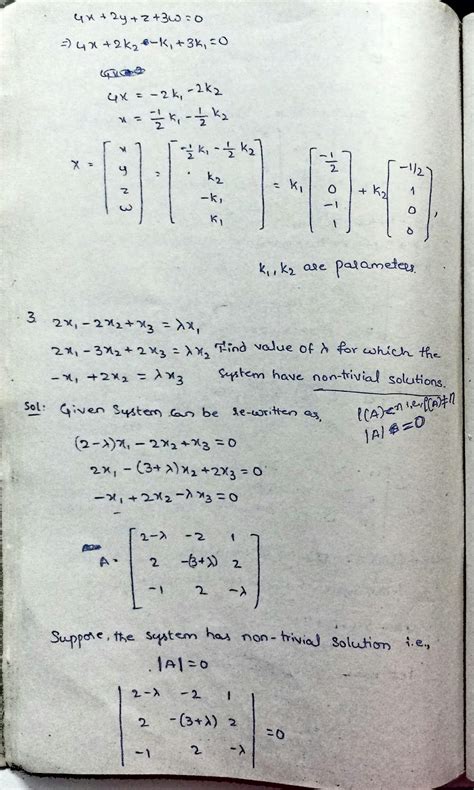 4x+2y+z+3w=0
⇒ 4x+2k₂-k₁+3k₁=0
4x = -2k₁-2k₂
x = -1/2 k₁ - 1/2 k₂
x = [x y z w] = [-1/2 k₁ - 1/2 k₂, k₂, -k₁, k₁] = k₁ [-1/2 0 -1 1] + k₂ [-1/2 1 0 0],
k₁, k₂ are parameters.
3. 2x₁-2x₂+x₃ = λx₁
2x₁-3x₂+2x₃ = λx₂ Find value of λ for which the
-x₁+2x₂ = λx₃ System have non-trivial solutions.
Sol: Given System can be re-written as, ρ(A)<n i.e., ρ(A)≠n
|A|=0
(2-λ)x₁-2x₂+x₃=0
2x₁-(3+λ)x₂+2x₃=0
-x₁+2x₂-λx₃=0
A = [2-λ -2 1
2 -(3+λ) 2
-1 2 -λ]
Suppose, the system has non-trivial solution i.e.,
|A|=0
|2-λ -2 1|
|2 -(3+λ) 2| =0
|-1 2 -λ|